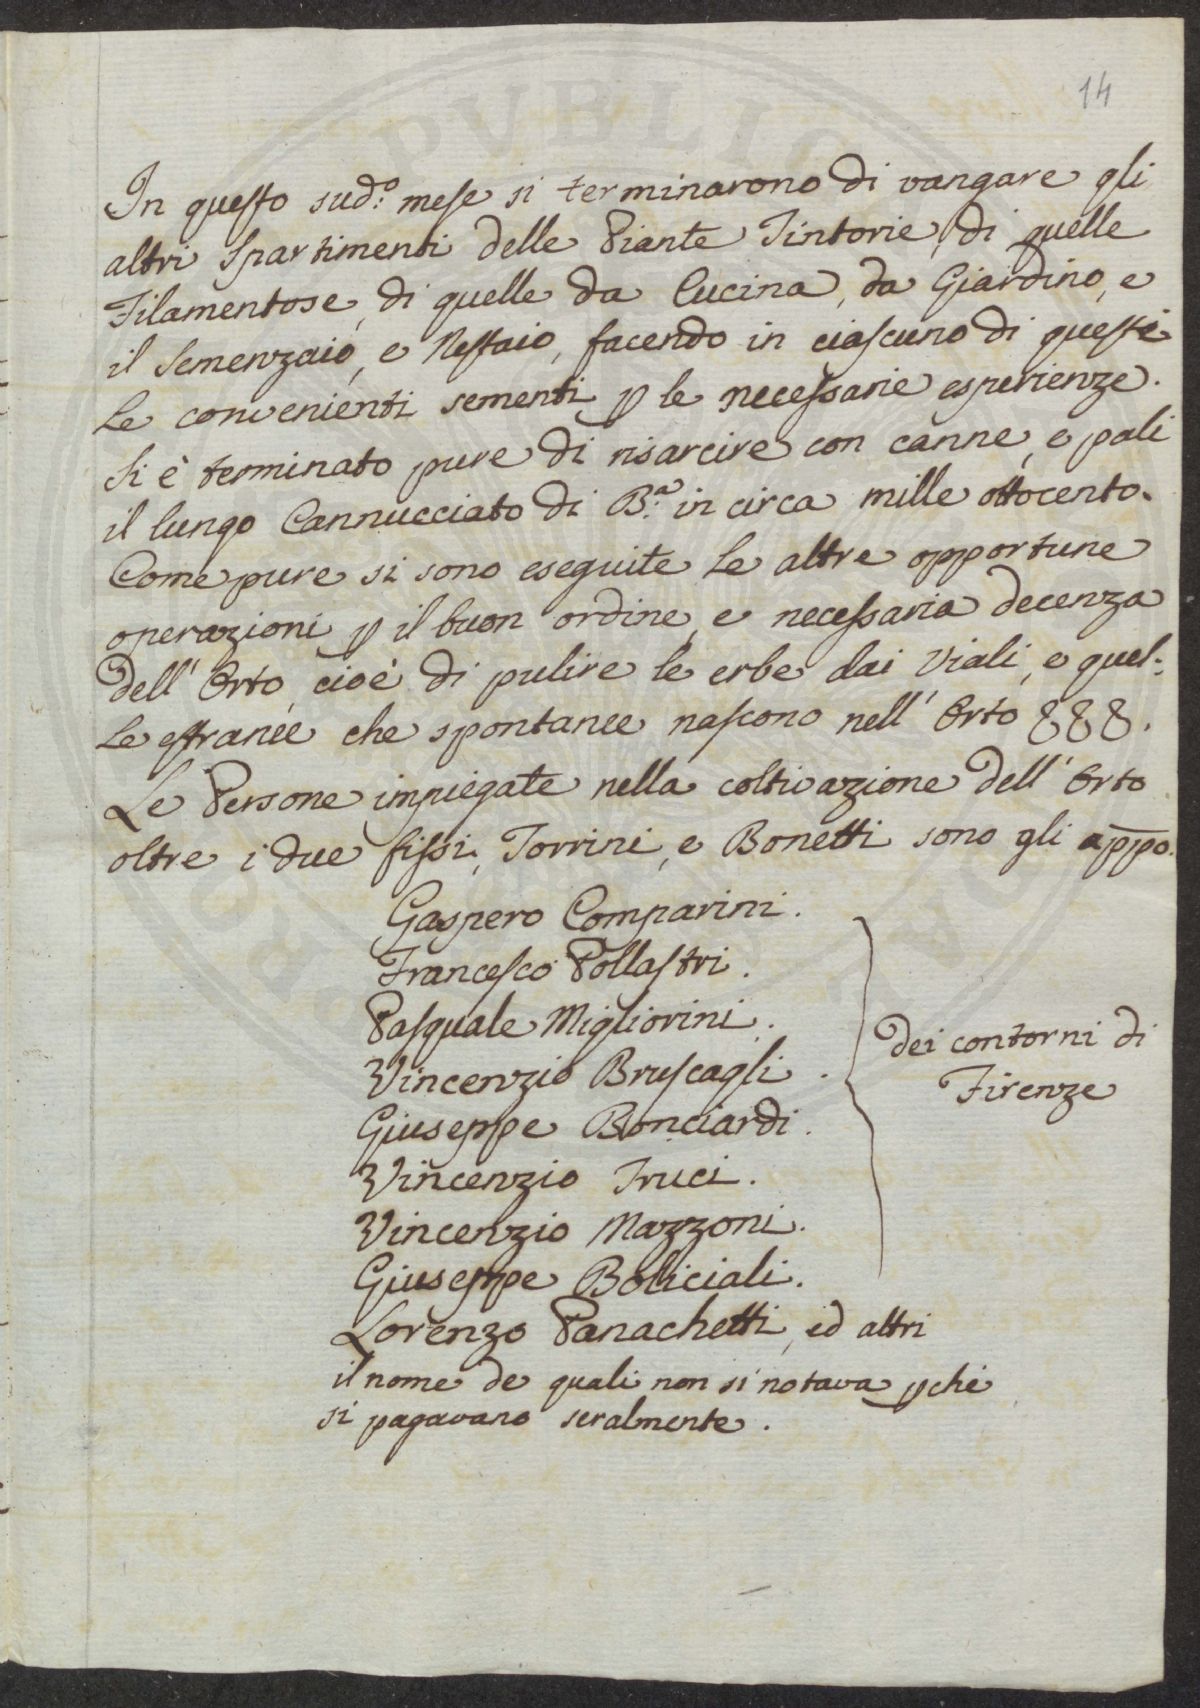 14
In questo sud.o mese si terminarono di vangare gli
altri Spartimenti delle Piante Tintorie, di quelle
Filamentose, di quelle da Cucina, da Giardino, e
il Semenzaio, e Nestaio, facendo in ciascuno di questi
le convenienti sementi p le necessarie esperienze.
Si è terminato pure di risarcire con canne, e pali
il lungo Cannucciato di B.a in circa mille ottocento.
Come pure si sono eseguite le altre opportune
operazioni p il buon ordine, e necessaria decenza
dell' Orto, cioè di pulire le erbe dai Viali, e quel-
le estranee che spontanee nascono nell' Orto &&&.
Le Persone impiegate nella coltivazione dell' Orto
oltre i due fissi, Torrini, e Bonetti sono gli appo.
Gaspero Comparini.
Francesco Pollastri.
Pasquale Migliorini.
Vincenzio Bruscagli.
Giuseppe Bonciardi.
Vincenzio Truci.
Vincenzio Mazzoni.
Giuseppe Boliciali.
dei contorni di
Firenze
Lorenzo Panachetti, ed altri
il nome de quali non si notava pchè
si pagavano seralmente.